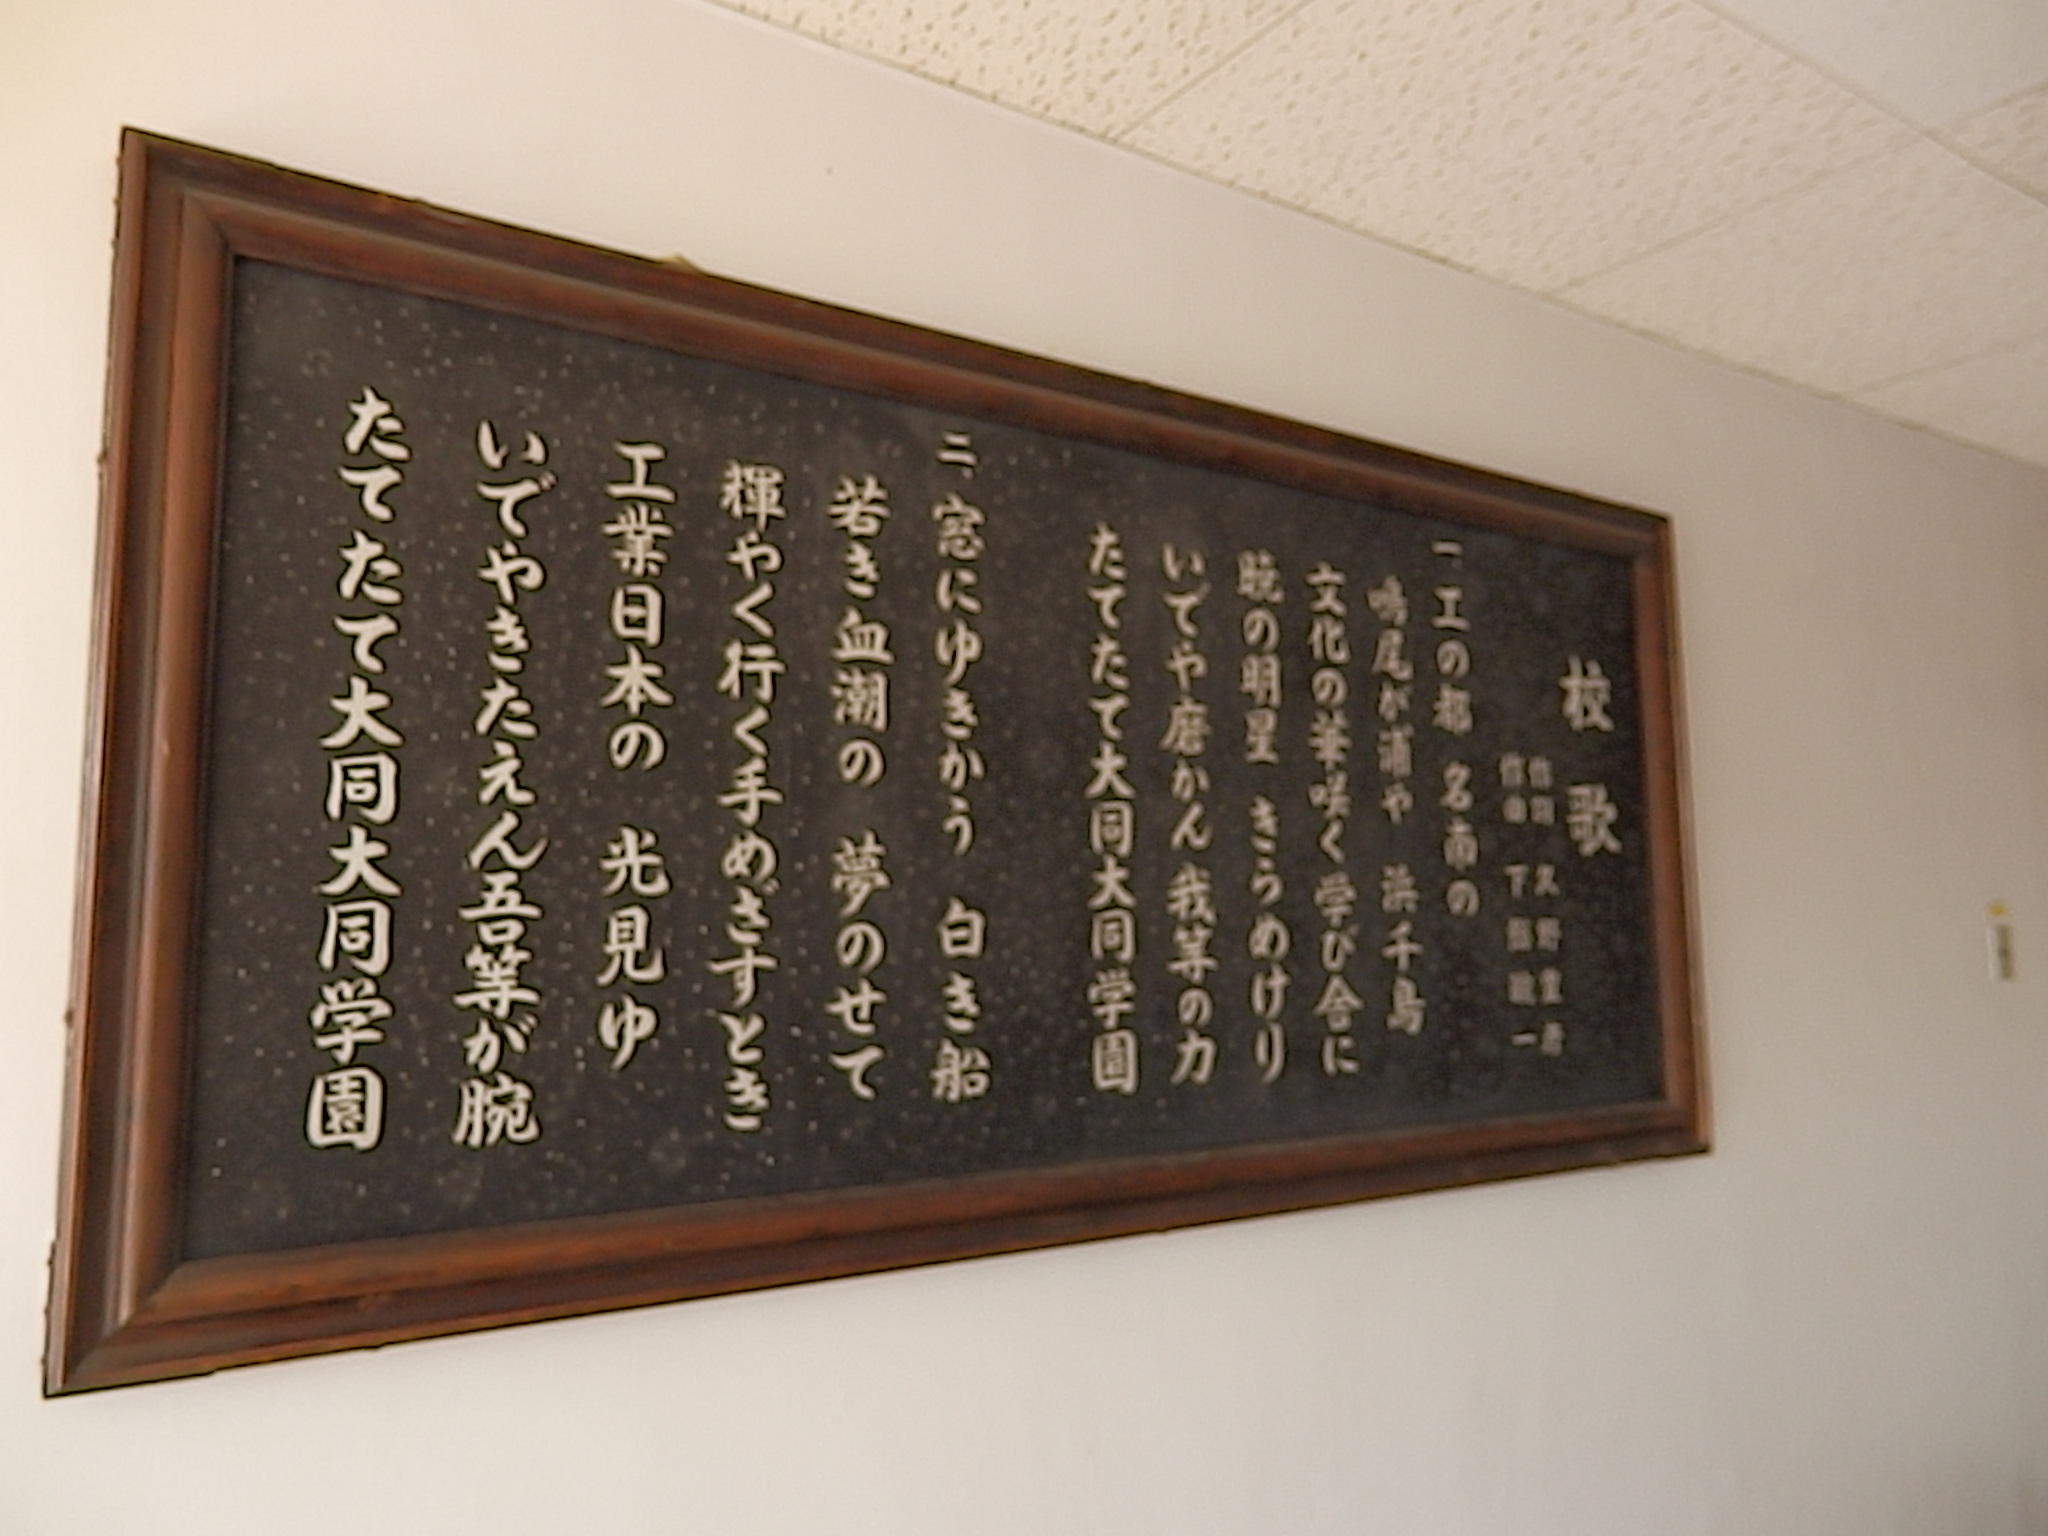 校歌
作詞 久野
作曲 下 一
一、工の都 名南の
鳴尾が浦や 浜千鳥
文化の華咲く学び舎に
暁の明星 きらめけり
いでや磨かん我等の力
たてたたて大同大同学園
二、窓にゆきかう 白き船
若き血潮の 夢のせて
輝やく行く手めざすとき
工業日本の 光見ゆ
いでやきたえん吾等が腕
たてたたて大同大同学園